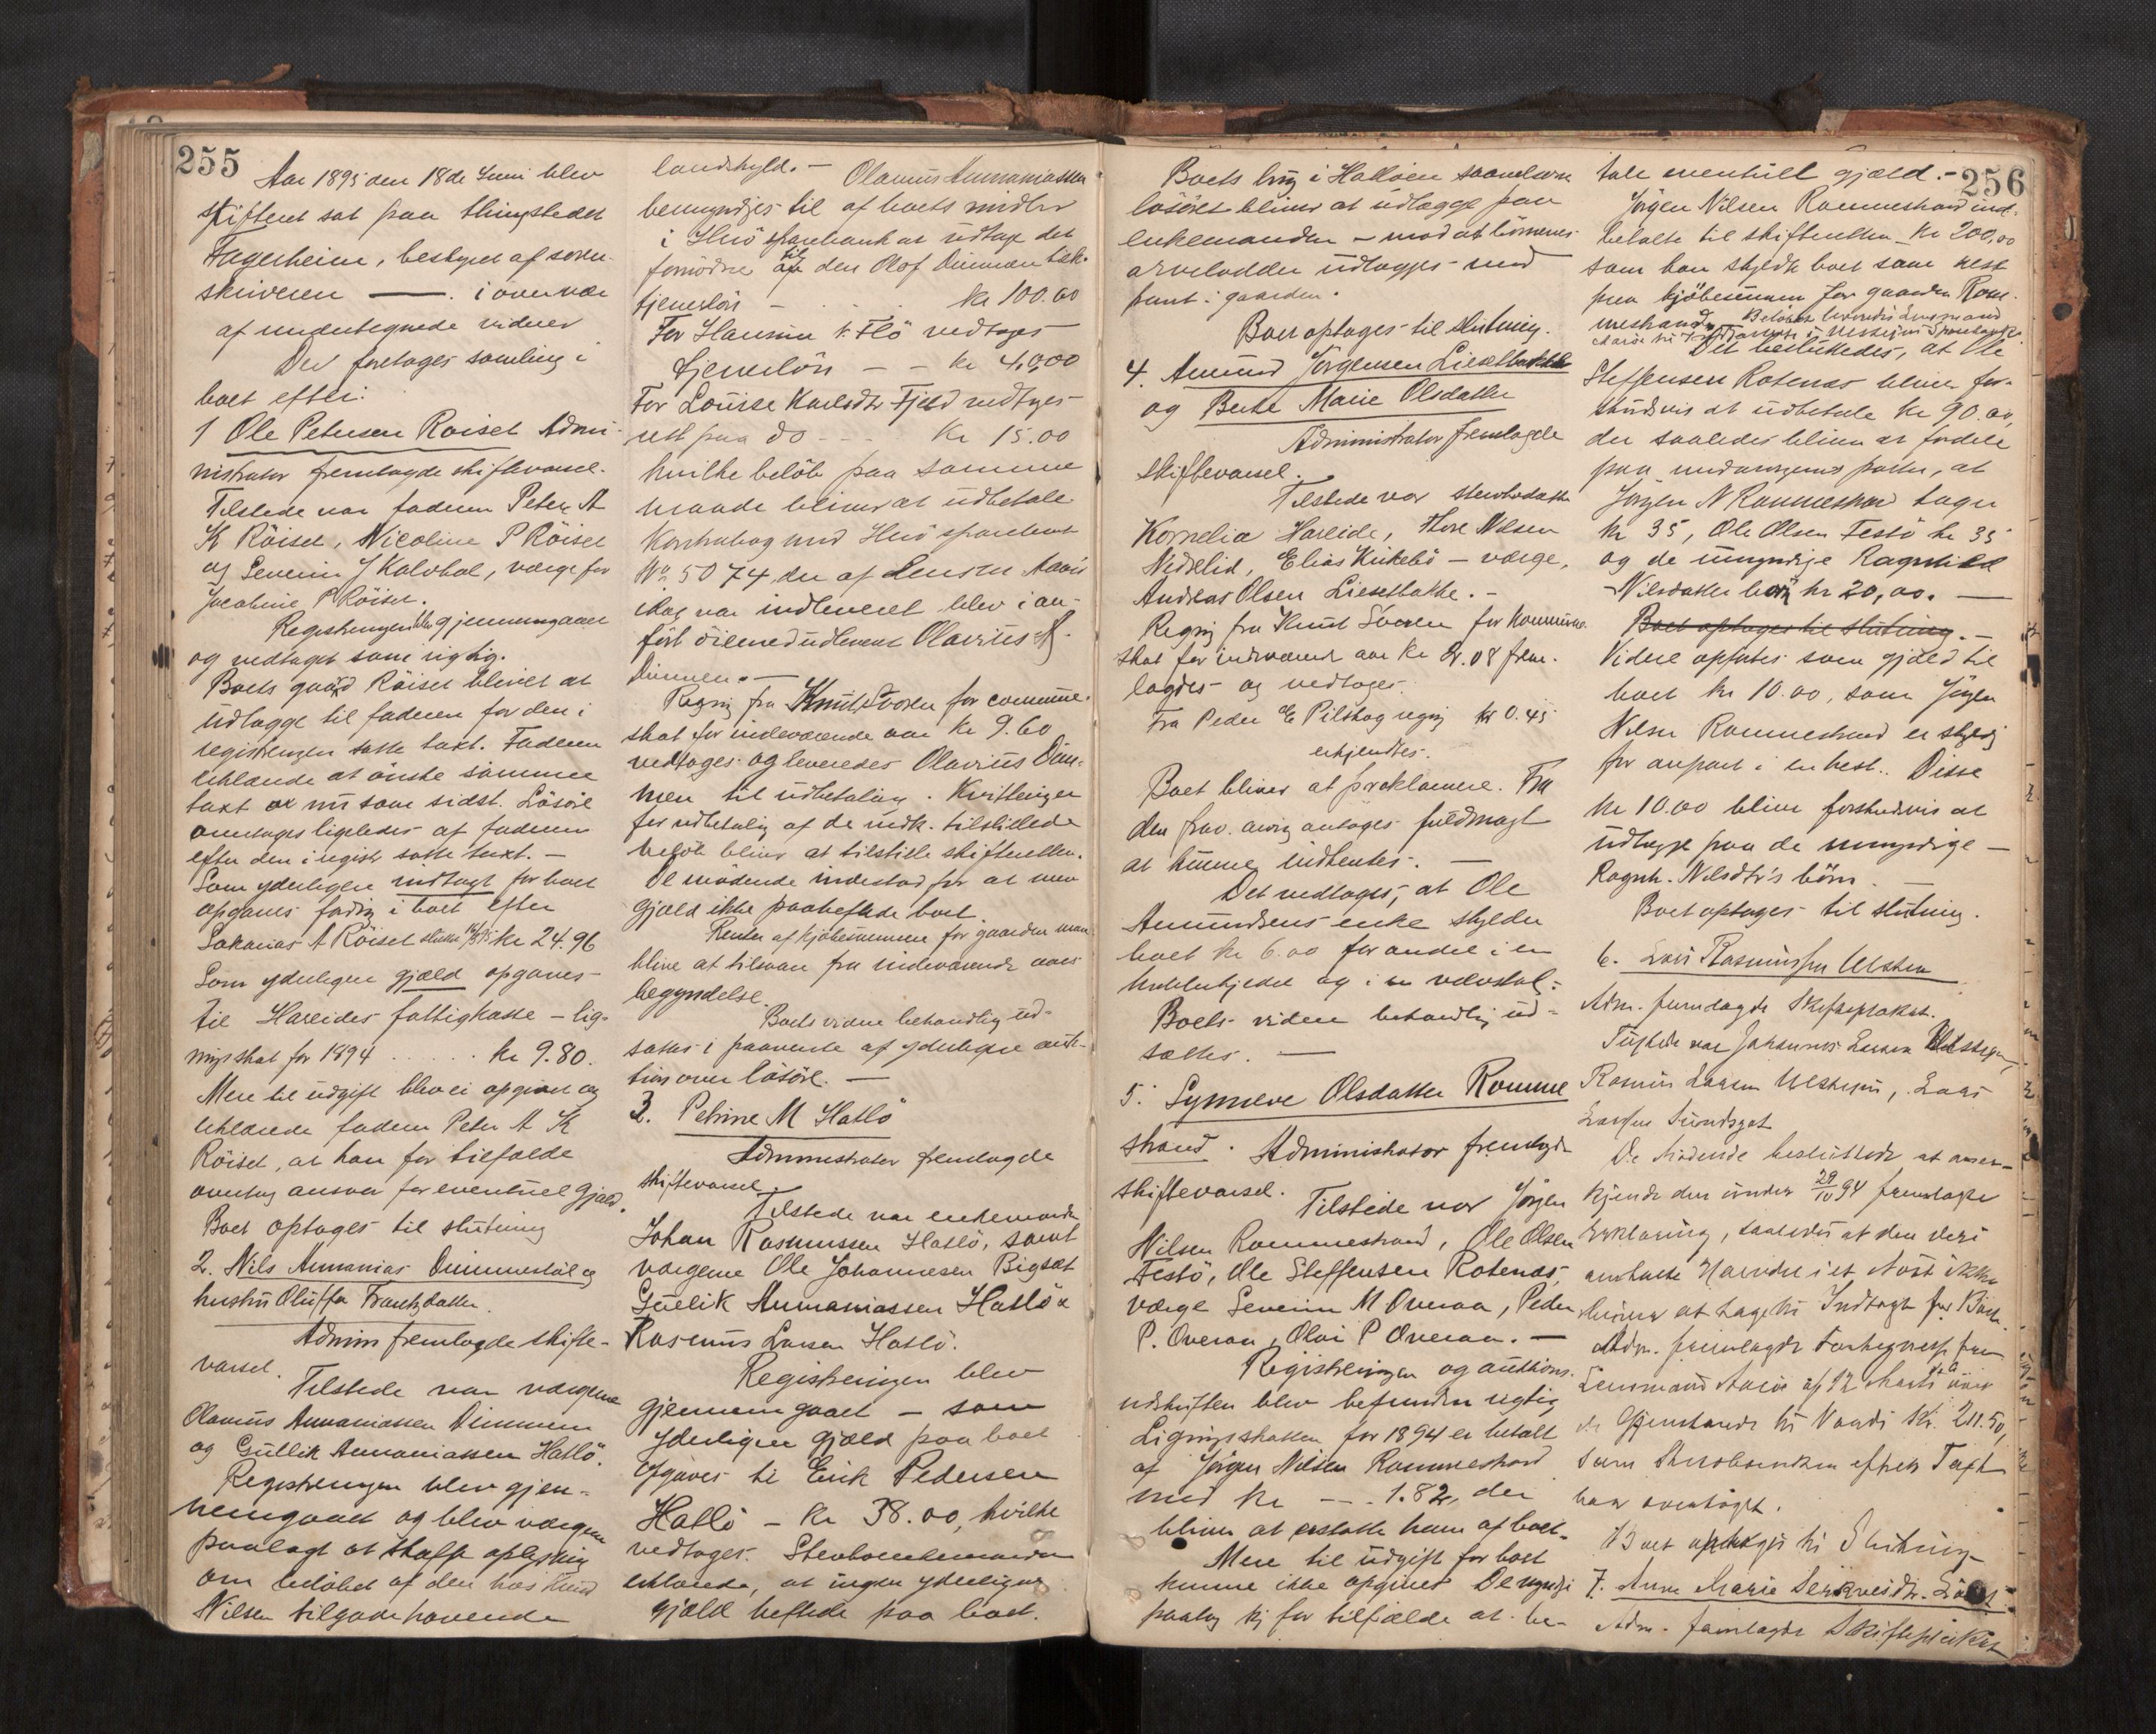 255
Aar 1895 den 18de Juni blev
skifteret sat paa thingstedet
Fagerheim, bestyret af soren-
skriveren —. i overvær
af undertegnede vidner
Der foretages samling i
boet efter:
1 Ole Petersen Röiset Admi-
nistrator fremlagde skiftevarsel.
Tilstede var faderen Peter A
K Röiset, Nicoline P Röiset
og Severin J Kalvhol, værge for
Jacobine P Röiset.
Registreringen blev gjennemgaaet
og vedtaget som rigtig.
Boets gaard Röiset blivet at
udlægge til faderen for den i
registreringen satte taxt. Faderen
erklærede at önske samme
taxt nu som sidst. Lösöre
overtages ligeledes af faderen
efter den i registr satte taxt. —
Som yderligere indtægt for boet
opgaves fordring i boet efter
Sakarias A Röiset kr 24.96
Som yderligere gjæld opgaves
til Hareides fattigkasse – lig-
ningsskat for 1894 . . . . . kr 9.80.
Mere til udgift blev ei opgivet og
erklærede faderen Peter A K
Röiset, at han for tilfælde
overtog ansvar for eventuel gjæld.
Boet optages til slutning
2. Nils Annanias Dimmestöl og
hustru Oluffa Frantzdatter.
Admin fremlagde skifte-
varsel.
Tilstede var værgerne
Olavius Annaniassen Dimmen
og Gullik Annaniassen Hatlö.
Registreringen blev gjen-
nemgaaet og blev værgerne
paalagt at skaffe oplysning
om belöbet af den hos Knud
Nilsen tilgodehavende
landskyld. –
Olavius Annaniassen
bemyndiges til af boets midler
i Herö sparebank at udtage det
fornödne til den Olof Dimmen tilk.
tjenerlön – . . . kr 100.00
For Hansine K. Flö vedtages
tjenerlön – – kr 40,00
For Louise Karlsdtr Fjeld vedtages
rest paa do – – – kr 15.00
hvilke belöb paa samme
maade bliver at udbetale
Kontrabog med Herö sparebank
No 5074, der af Lensm Aarö
idag var indleveret blev i an-
fört öiemed udleveret Olavius A
Dimmen. —
Regning fra Knut Svoren for commune-
skat for indeværende aar kr 9.60
vedtages og leveredes Olavius Dim-
men til udbetaling. Kvitteringer
for udbetaling af de indk. tilstillede
belöb bliver at tilstille skifteretten.
De mödende indestod for at mere
gjæld ikke paaheftede boet.
Renter af kjöbesummene for gaarden maa
blive at tilsvare fra indeværende aars
begyndelse.
Boets videre behandling ud-
sattes i paavente af yderligere auk-
tion over lösöre. —
3. Petrine M Hatlö
Administrator fremlagde
skiftevarsel.
Tilstede var enkemanden
Johan Rasmussen Hatlö, samt
værgerne Ole Johannesen Bigset
Gullik Annaniassen Hatlö &
Rasmus Larsen Hatlö.
Registreringen blev
gjennemgaaet – som
yderligere gjæld paa boet
opgaves til Erik Pedersen
Hatlö – kr 38.00, hvilke
vedtages. Stervboenkemanden
erklærede, at ingen yderligere
gjæld heftede paa boet.
256
Boets brug i Hatlöen saavelsom
lösöret bliver at udlægge paa
enkemanden – mod at börnenes
arvelodder udlægges med
pant i gaarden.
Boet optages til slutning.
4. Amund Jörgensen Liesetbakke
og Berte Marie Olsdatter
Administrator fremlagde
skiftevarsel.
Tilstede var stervbodatter
Kornelia Hareide, Thore Nilsen
Nedrelid, Elias Kirkebö – værge,
Andreas Olsen Liesetbakke. –
Regning fra Knut Svoren for kommune-
skat for indeværende aar kr 2.08 frem-
lagdes og vedtages.
Fra Peder E Pilskog regning kr 0.45
erkjendtes.
Boet bliver at proklamere. Fra
den frav. arving antoges fuldmagt
at kunne indhentes. —
Det vedtages, at Ole
Amundsens enke skylder
boet kr 6.00 for andel i en
kobberkjedel og i en vævstol.
Boets videre behandling ud-
sættes. —
5. Synneve Olsdatter Romme-
strand. Administrator fremlagde
skiftevarsel.
Tilstede var Jörgen
Nilsen Rommestrand, Ole Olsen
Festö, Ole Steffensen Rotenæs,
værge Severin M Overaa, Peder
P. Overaa, Olai P Overaa. —
Registreringen og auktions-
udskriften blev befunden rigtig
Ligningsskatten for 1894 er betalt
af Jörgen Nilsen Rommestrand
med kr – – . 1.82, der
bliver at erstatte ham af boet.
Mere til udgift for boet
kunne ikke opgives De myndige
paatog sig for tilfælde at be-
tale eventuell gjæld. –
Jörgen Nilsen Rommestrand ind-
betalte til skifteretten kr 200,00
som han skyldte boet som rest
paa kjöbesummen for gaarden Rom-
mestrand. Belöbet leveredes Lensmand
Aarö til Indsættelse i Sparebank.
Det besluttedes, at Ole
Steffensen Rotenæs bliver for-
skudsvis at udbetale kr 90.00,
der saaledes bliver at fordele
paa medarvingernes parter, at
Jörgen N Rommestrand tager
kr 35, Ole Olsen Festö kr 35
og de umyndige Ragnhild
Nilsdatters börn kr 20,00. —
Boet optages til slutning. –
Videre opförtes som gjæld til
boet kr 10.00, som Jörgen
Nilsen Rommestrand er skyldig
for anpart i en hest. Disse
kr 10.00 bliver forskudsvis at
udlægge paa de umyndige –
Ragnh. Nilsdtr's börn. —
Boet optages til slutning.
6. Lars Rasmussen Ulstein
Adm. fremlagde Skifteplakat.
Tilstede var Johannes Larsen Ulstein,
Rasmus Larsen Ulstein, Lars
Larsen Sundgot
De Mödende besluttede at aner-
kjende den under 29/10 94 fremlagte
Erklæring, saaledes at den deri
omhandlede Naver i et Nöst ikke
bliver at tage til Indtægt for Boet.
Adm. fremlagde Fortegnelse fra
Lensmand Aarö af 12 Marts d.a. over
de Gjenstande til Værdi Kr. 211.50,
som Stervboenken efter Taxt
har overtaget.
Boet optages til Slutning
7. Anne Marie Serkvesdtr. Lö
Adm. fremlagde Skifteplakat